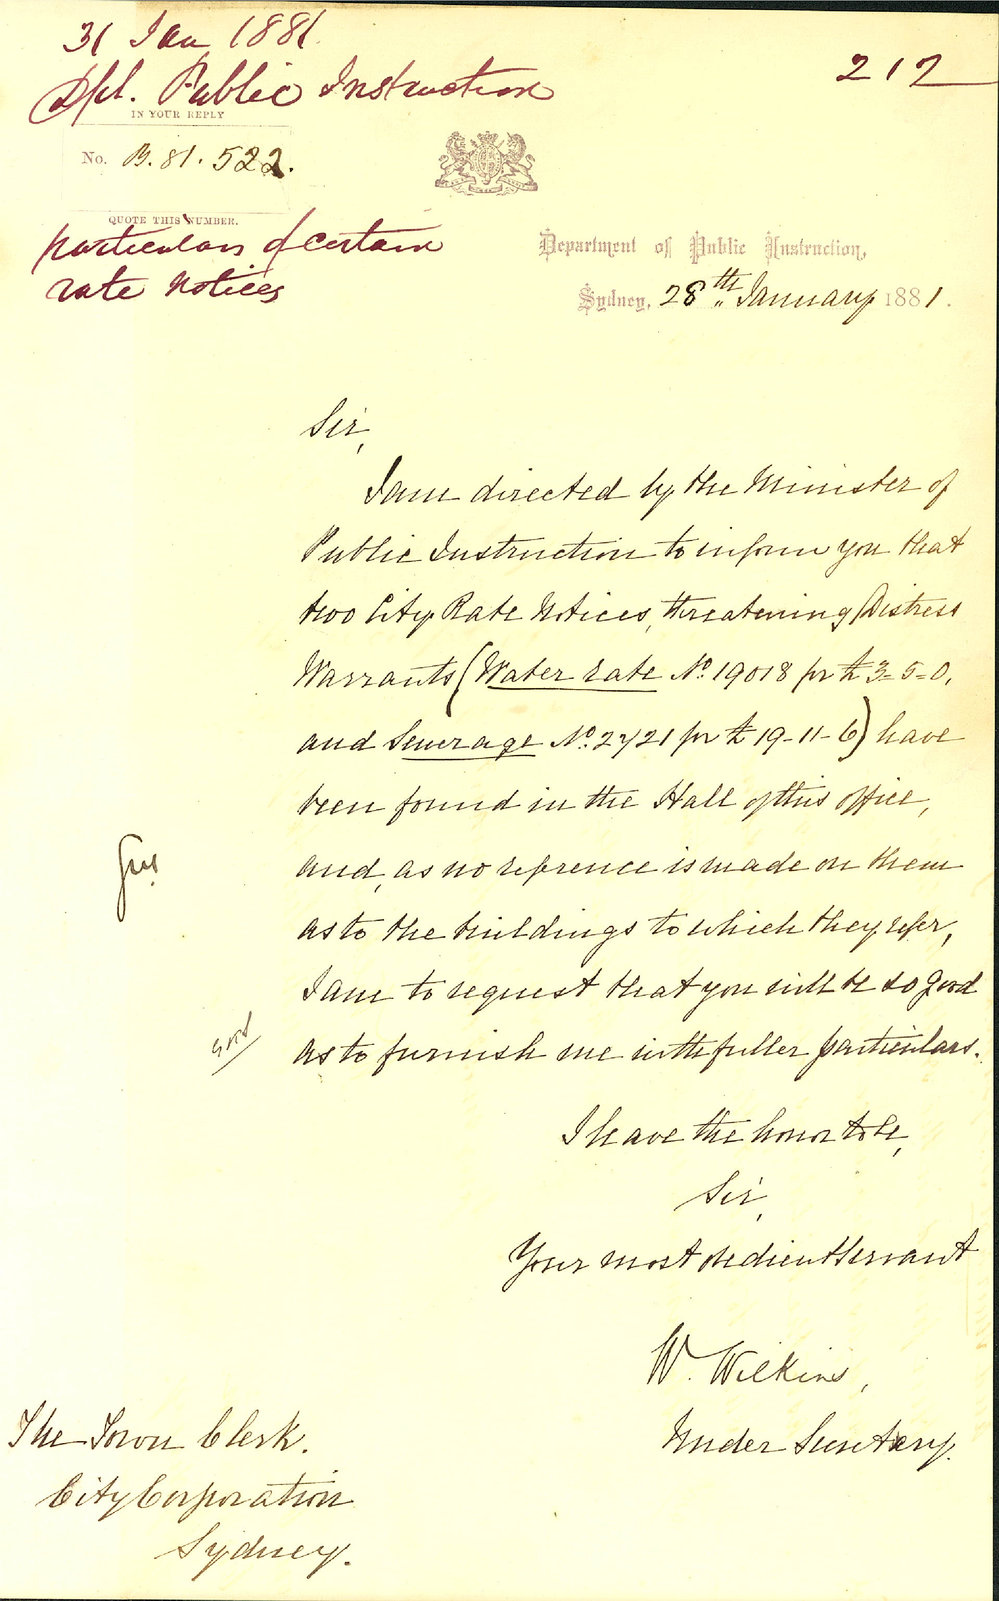 31 Jan 1881
212
Dpt. Public Instruction
IN YOUR REPLY
No. B.81.522.
QUOTE THIS NUMBER.
particulars of certain
rate notices
Department of Public Instruction,
Sydney, 28th January 1881.
Sir,
I am directed by the Minister of
Public Instruction to inform you that
two City Rate Notices, threatening Distress
Warrants (Water rate No. 19018 for £3-5-0,
and Sewerage No. 2721 for £19-11-6) have
been found in the Hall of this office,
and, as no reference is made on them
as to the buildings to which they refer,
I am to request that you will be so good
as to furnish me with fuller particulars.
I have the honor to be,
Sir,
Your most obedient servant
W. Wilkins,
Under Secretary.
The Town Clerk.
City Corporation
Sydney.